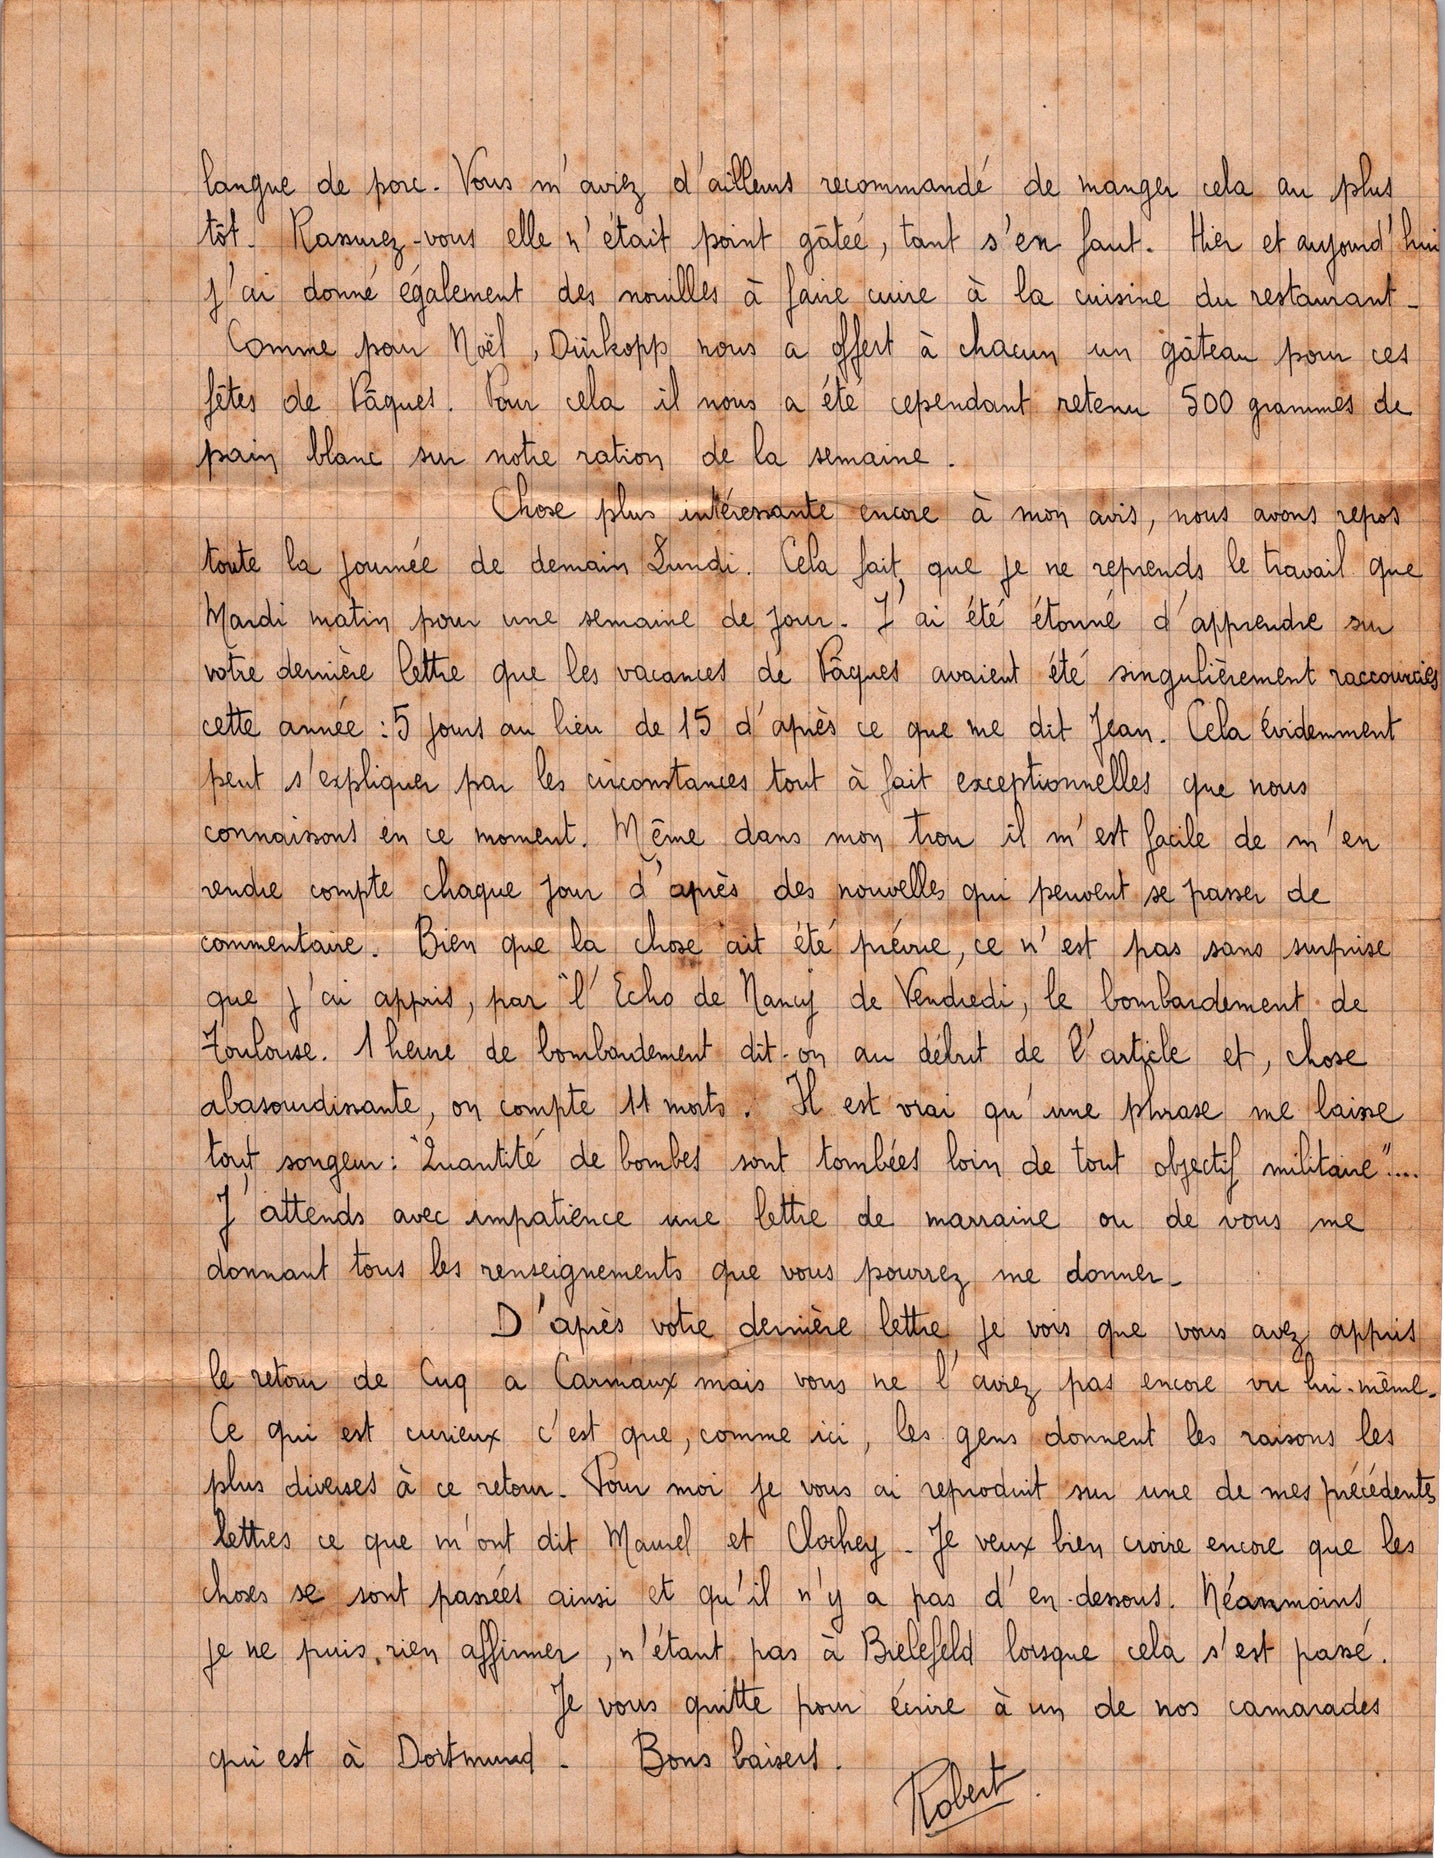 langue de porc. Vous m'aviez d'ailleurs recommandé de manger cela au plus
tôt. Rassurez-vous elle n'était point gâtée, tant s'en faut. Hier et aujourd'hui
j'ai donné également des nouilles à faire cuire à la cuisine du restaurant.
Comme pour Noël, Dürkopp nous a offert à chacun un gâteau pour ces
fêtes de Pâques. Pour cela il nous a été cependant retenu 500 grammes de
pain blanc sur notre ration de la semaine.
Chose plus intéressante encore à mon avis, nous avons repos
toute la journée de demain Lundi. Cela fait que je ne reprends le travail que
Mardi matin pour une semaine de jour. J'ai été étonné d'apprendre sur
votre dernière lettre que les vacances de Pâques avaient été singulièrement raccourcies
cette année : 5 jours au lieu de 15 d'après ce que me dit Jean. Cela évidemment
peut s'expliquer par les circonstances tout à fait exceptionnelles que nous
connaissons en ce moment. Même dans mon trou il m'est facile de m'en
rendre compte chaque jour d'après des nouvelles qui peuvent se passer de
commentaire. Bien que la chose ait été prévue, ce n'est pas sans surprise
que j'ai appris, par "l'Echo de Nancy de Vendredi, le bombardement de
Toulouse. 1 heure de bombardement dit-on au début de l'article et, chose
abasourdissante, on compte 11 morts. Il est vrai qu'une phrase me laisse
tout songeur : "Quantité de bombes sont tombées loin de tout objectif militaire"....
J'attends avec impatience une lettre de marraine ou de vous me
donnant tous les renseignements que vous pourrez me donner.
D'après votre dernière lettre je vois que vous avez appris
le retour de Cuq a Carmaux mais vous ne l'aviez pas encore vu lui-même.
Ce qui est curieux c'est que, comme ici, les gens donnent les raisons les
plus diverses à ce retour. Pour moi je vous ai reproduit sur une de mes précédentes
lettres ce que m'ont dit Maurel et Clochey. Je veux bien croire encore que les
choses se sont passées ainsi et qu'il n'y a pas d'en-dessous. Néanmoins
je ne puis rien affirmer, n'étant pas à Bielefeld lorsque cela s'est passé.
Je vous quitte pour écrire à un de nos camarades
qui est à Dortmund. Bons baisers.
Robert.